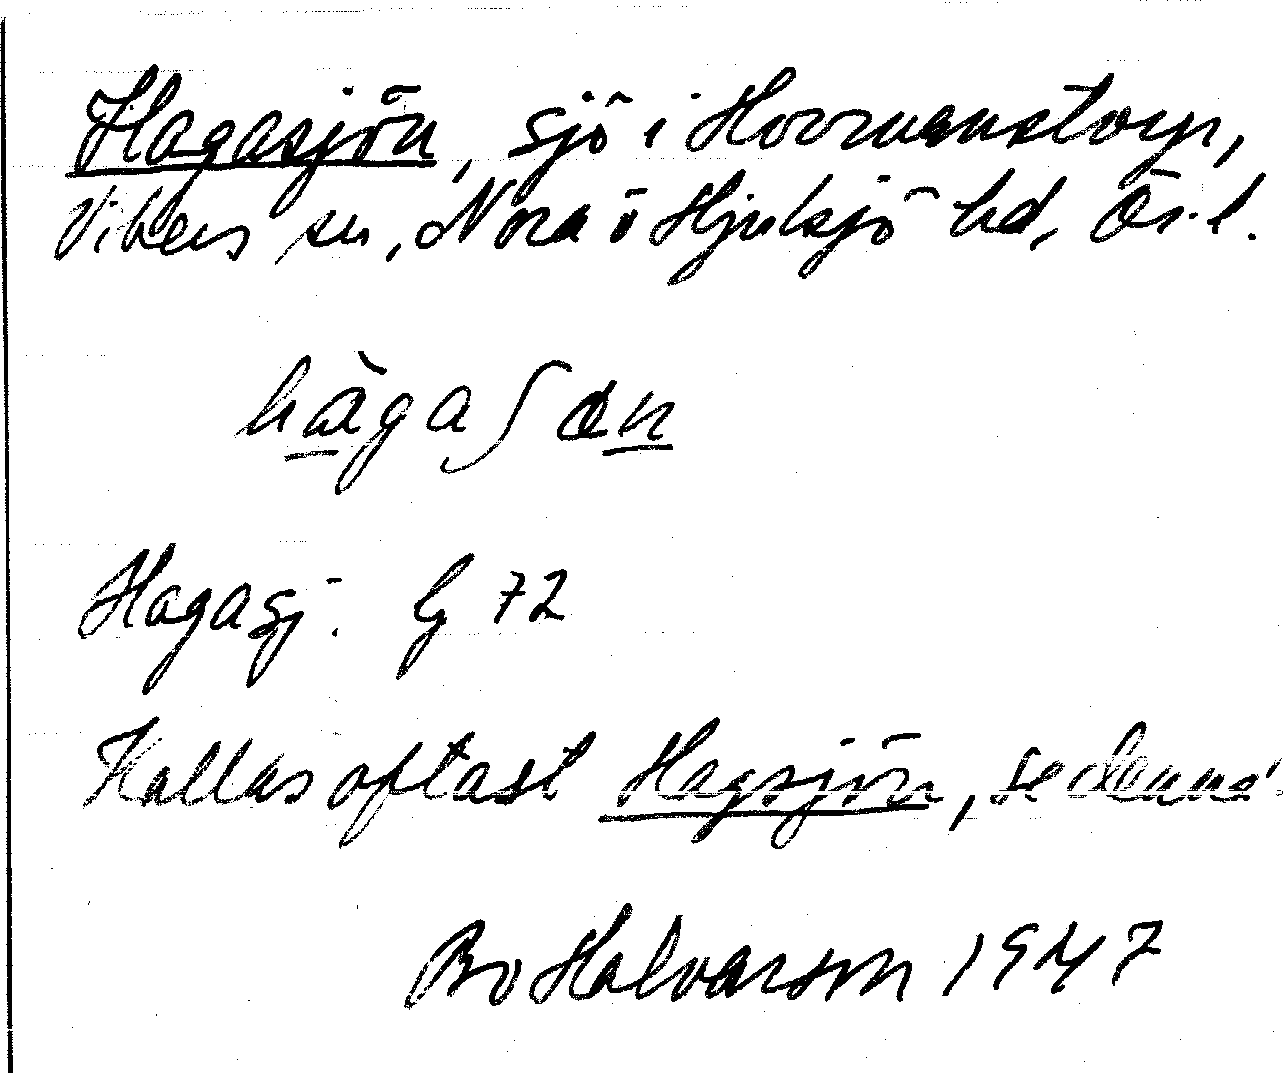 Hagasjön, sjö i Hovmanstorp,
Vikers sn, Nora o Hjulsjö hd, Ös.l.
hàgaʃøn
Hagasj. G 72
Kallas oftast Hagsjön, se denna!
Bo Halvarson 1947